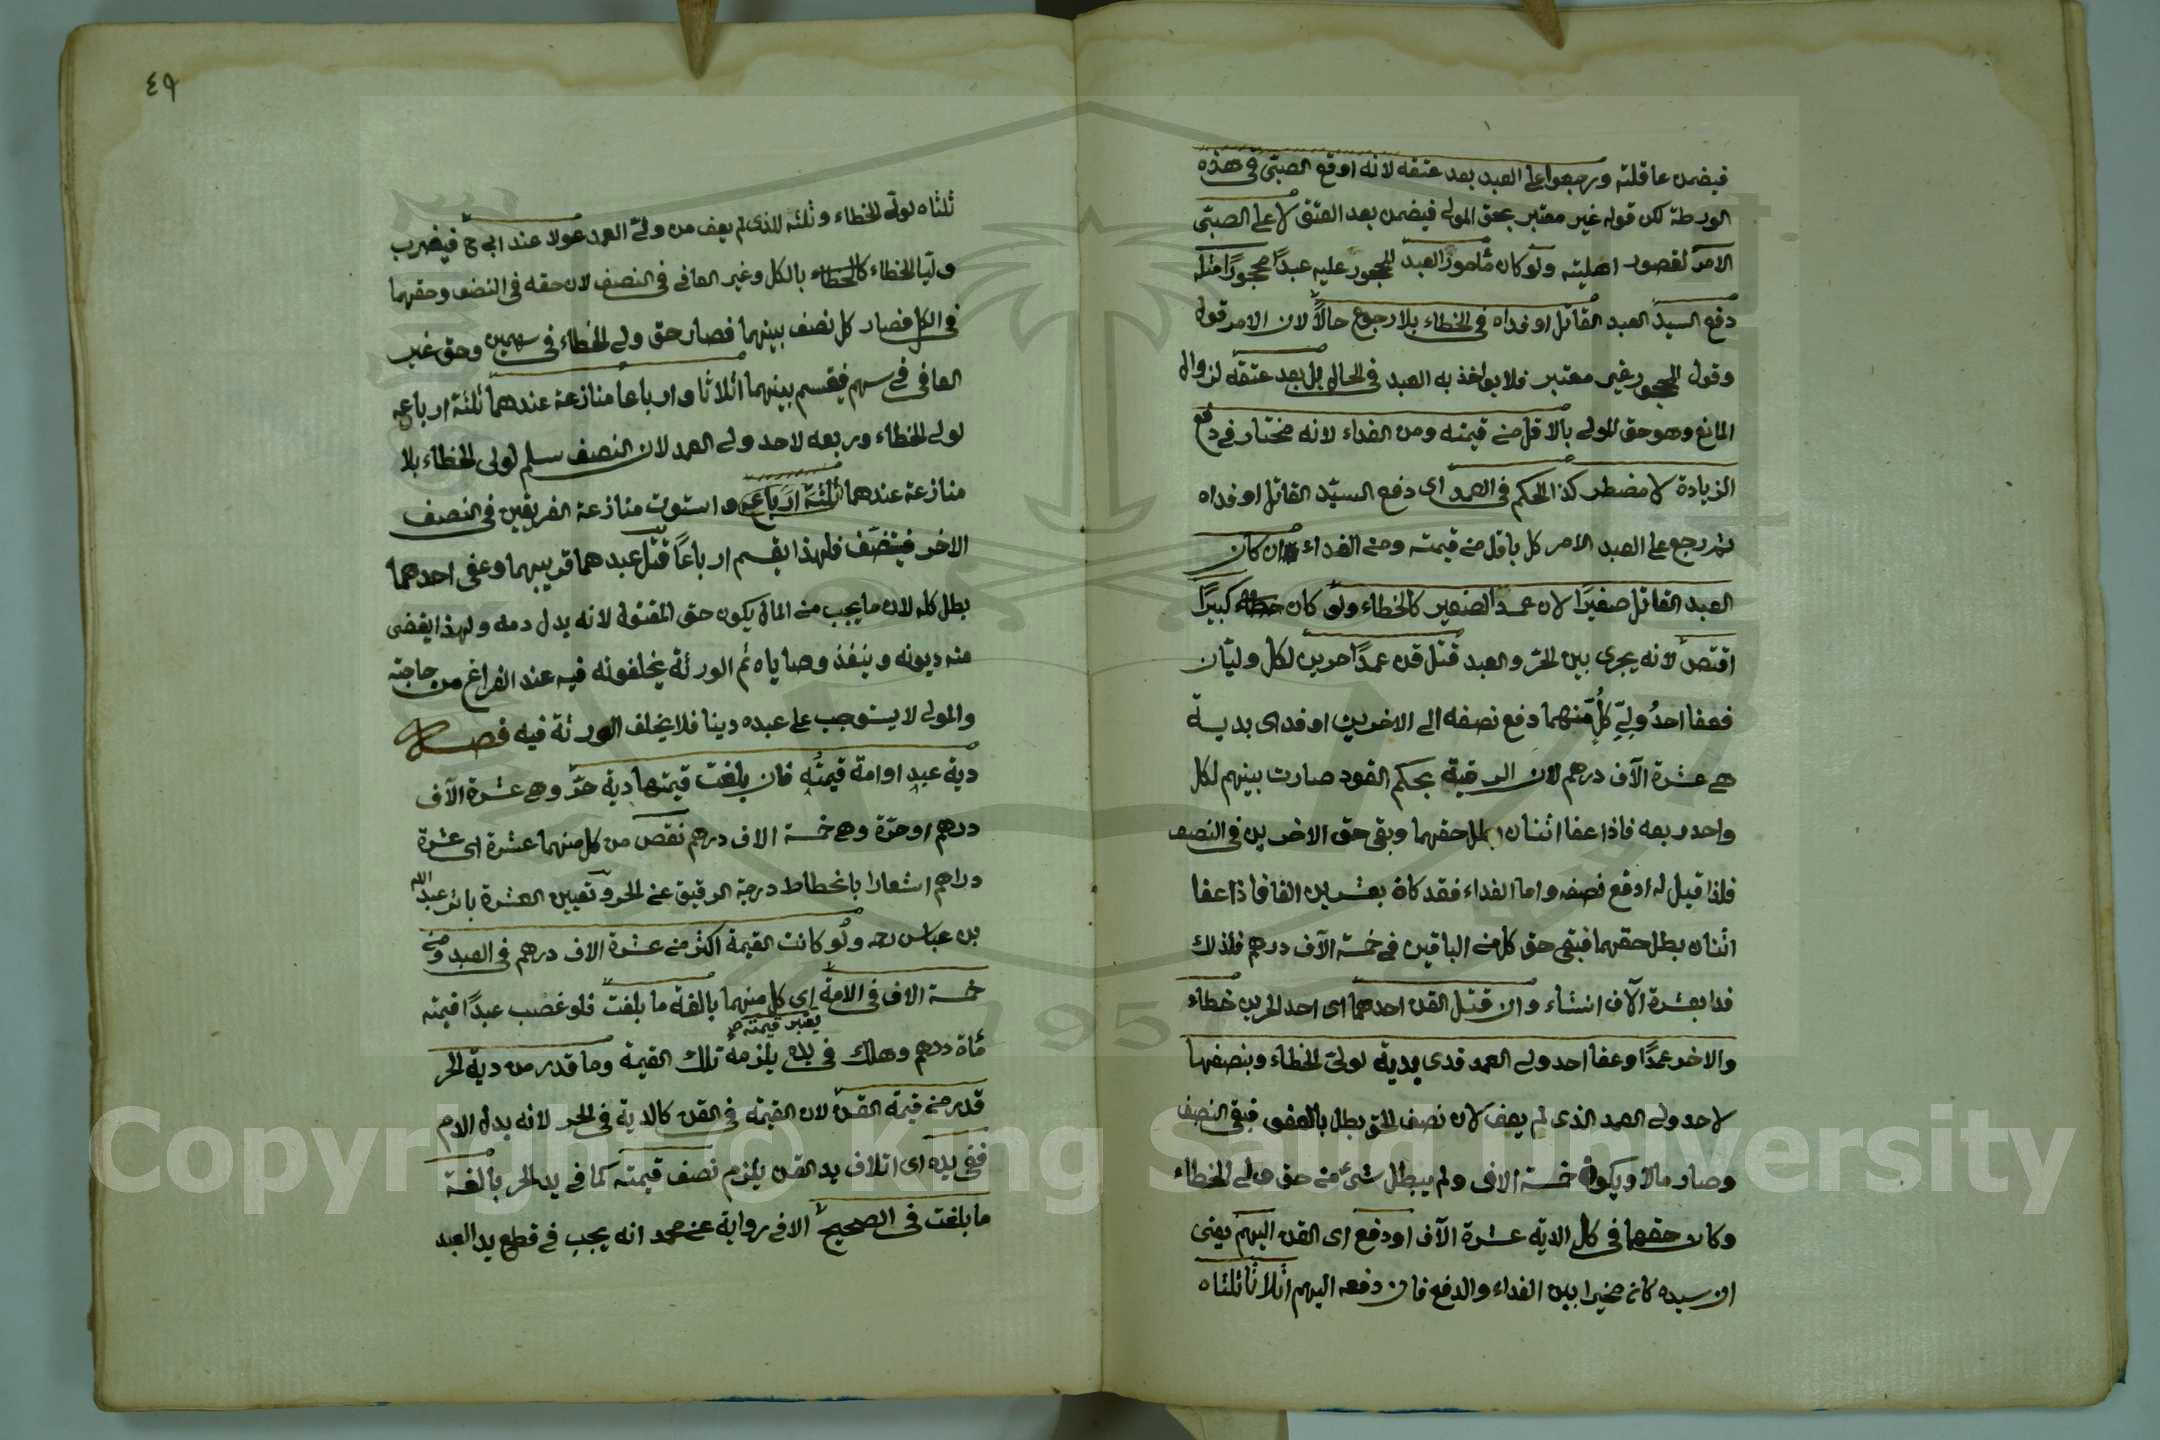 فيضمن عاقلته ورجعوا على العبد بعد عتقه لانه اوقع الصبى فى هذه
الورطة لكن قوله غير معتبر بحق المولى فيضمن بعد العتق لا على الصبى
الامر لقصور اهليته ولو كان مأمور العبد المحجور عليه عبدًا محجورًا مثله
دفع السيد العبد القاتل او فداه فى الخطاء بلا رجوع حالاً لان الامر قول
وقول المحجور غير معتبر فلا يواخذ به العبد فى الحال بل بعد عتقه لزوال
المانع وهو حق المولى بالاقل من قيمته ومن الفداء لانه مختار فى دفع
الزيادة لا مضطر كذا الحكم فى العمد اى دفع السيد القاتل او فداه
ثم رجع على العبد الامر كل باقل من قيمته ومن الفداء ان كان
العبد القاتل صغيرًا لان عمد الصغير كالخطاء ولو كان كبيرًا
اقتص لانه يجرى بين الحر والعبد قتل قن عمدًا حرين لكل وليان
فعفا احدُ ولِيّ كلٍّ منهما دفع نصفه الى الاخرين او فدى بدية
هى عشرة الآف درهم لان الرقبة بحكم القود صارت بينهم لكل
واحد ربعه فاذا عفا اثنان بطل حقهما وبقى حق الاخرين فى النصف
فلذا قيل له ادفع نصفه واما الفداء فقد كان بعشرين الفا فاذا عفا
اثنان بطل حقهما فبقى حق كل من الباقين فى خمسة الآف درهم فلذلك
فدا بعشرة الآف انشاء وان قتل القن احدهما اى احد الحرين خطاء
والاخر عمدًا وعفا احد ولى العمد فدى بدية لولى الخطاء وبنصفها
لاحد ولى العمد الذى لم يعف لان نصف الحق بطل بالعفو فبقى النصف
وصار مالا ويكون خمسة الاف ولم يبطل شئ من حق ولى الخطاء
وكان حقهما فى كل الدية عشرة الآف او دفع اى القن اليهم يعنى
ان سيده كان مخيرا بين الفداء والدفع فان دفعه اليهم اثلاثًا ثلثاه
٤٩
ثلثاه لولى الخطاء وثلثه للذى لم يعف من ولى العمد عولا عند ابى ح فيضرب
وليا الخطاء بالكل وغير العافى فى النصف لان حقه فى النصف وحقهما
فى الكل فصار كل نصف بينهما فصار حق ولى الخطاء فى سهمين وحق غير
العافى فى سهم فيقسم بينهما اثلاثا وارباعا منازعة عندهما ثلثة ارباعه
لولى الخطاء وربعه لاحد ولى العمد لان النصف سلم لولى الخطاء بلا
منازعة عندهما ثلثة ارباعه واستوت منازعة الفريقين فى النصف
الاخر فيتنصف فلهذا يقسم ارباعًا قتل عبدهما قريبهما وعفى احدهما
بطل كله لان ما يجب من المال يكون حق المقتول لانه بدل دمه ولهذا يقضى
منه ديونه وينفذ وصاياه ثم الورثة يخلفونه فيه عند الفراغ من حاجته
والمولى لا يستوجب على عبده دينا فلا يخلف الورثة فيه فصل
دية عبد او امة قيمته فان بلغت قيمتها دية حر وهى عشرة الآف
درهم او حرة وهى خمسة الاف درهم نقص من كل منهما عشرة اى عشرة
دراهم اشعارا بانحطاط درجة الرقيق عن الحر وتعيين العشرة باثر عبد الله
بن عباس رحه ولو كانت القيمة اكثر من عشرة الاف درهم فى العبد ومن
خمسة الاف فى الامة اى كل منهما بالغة ما بلغت فلو غصب عبدًا قيمته
يعتبر قيمته
مأة درهم وهلك فى يده يلزمه تلك القيمة وما قدر من دية الحر
قدر من قيمة القن لان القيمة فى القن كالدية فى الحر لانه بدل الدم
ففى يده اى اتلاف يد القن يلزم نصف قيمته كما فى يد الحر بالغة
ما بلغت فى الصحيح الا فى رواية عن محمد انه يجب فى قطع يد العبد
Copyright © King Saud University
1957